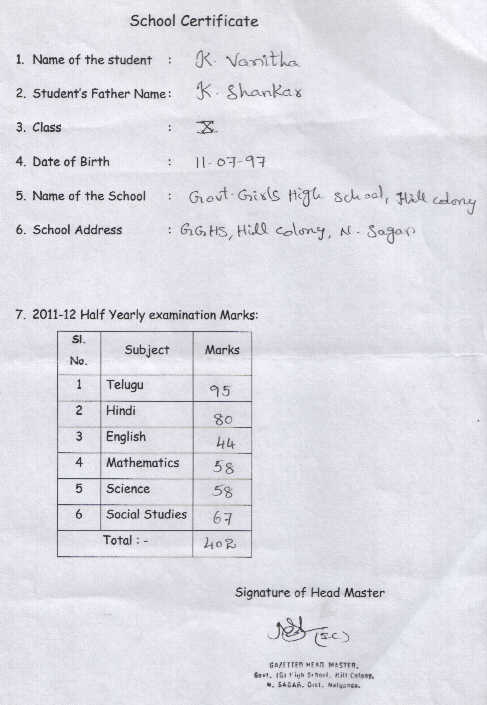 School Certificate
1. Name of the student : K. Vanitha
2. Student's Father Name: K. Shankar
3. Class : X
4. Date of Birth : 11-07-97
5. Name of the School : Govt. Girls High School, Hill colony
6. School Address : GGHS, Hill colony, N. Sagar
7. 2011-12 Half Yearly examination Marks:
Sl. No. Subject Marks
1 Telugu 95
2 Hindi 80
3 English 44
4 Mathematics 58
5 Science 58
6 Social Studies 67
Total :- 402
Signature of Head Master
(S.C)
GAZETTED HEAD MASTER,
Govt. (G) High School, Hill Colony,
N. SAGAR, Dist. Nalgonda.